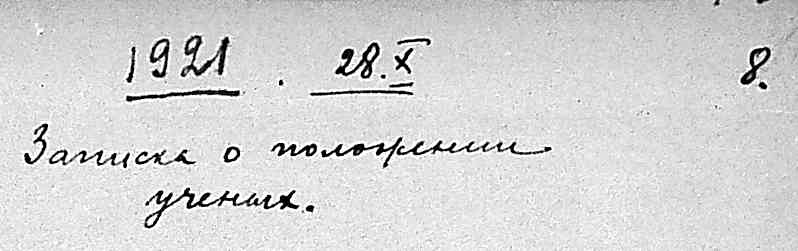 1921. 28.X 8.
Записка о положении
ученых.